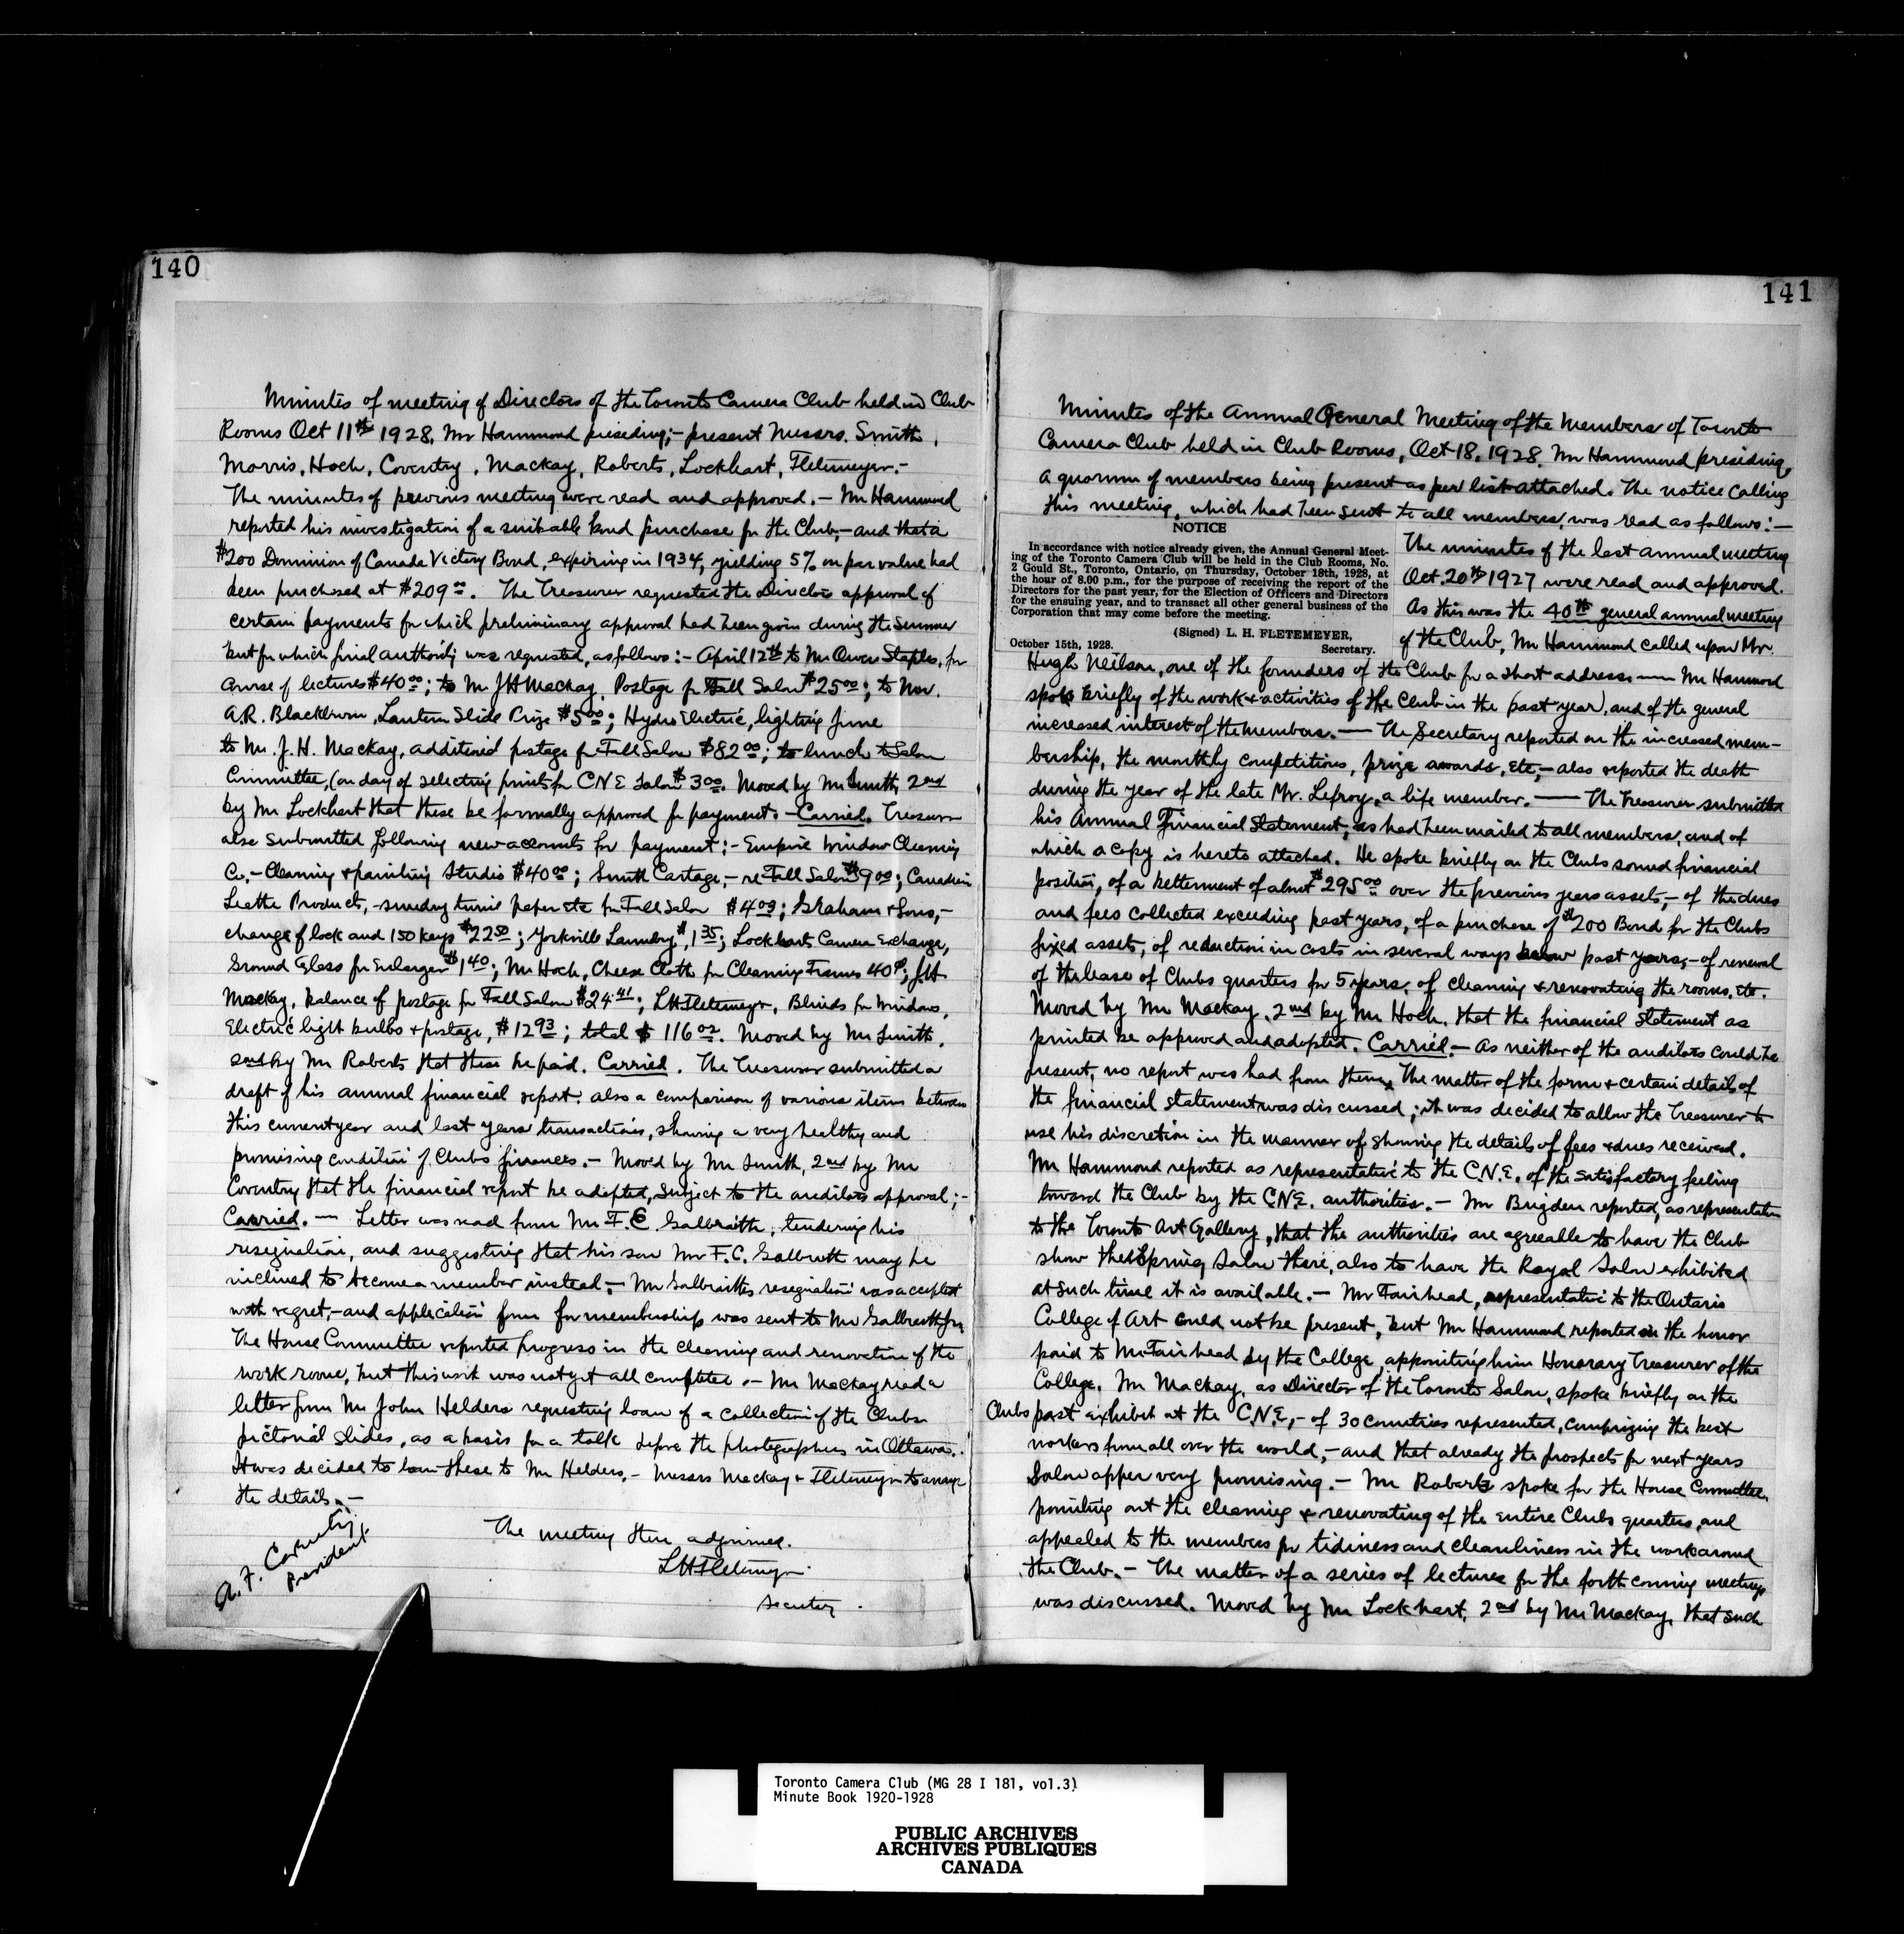 140
Minutes of meeting of Directors of the Toronto Camera Club held in Club
Rooms Oct 11th 1928. Mr Hammond presiding;- present Messrs. Smith,
Morris, Hoch, Coventry, Mackay, Roberts, Lockhart, Fletemeyer.-
The minutes of previous meeting were read and approved. - Mr Hammond
reported his investigation of a suitable bond purchase for the Club,- and that a
$200 Dominion of Canada Victory Bond, expiring in 1934, yielding 5% on par value had
been purchased at $209 00. The Treasurer requested the Directors approval of
certain payments for which preliminary approval had been given during the summer
but for which final authority was requested, as follows:- April 12th to Mr Owen Staples, for
course of lectures $40 00; to Mr J H Mackay, Postage for Fall Salon $25 00; to
A.R. Blackburn, Lantern Slide Prize $5 00; Hydro Electric, lighting June
to Mr. J. H. Mackay, additional postage for Fall Salon $82 00; to lunch to Salon
Committee, (on day of selecting prints for C N E Salon $3 00. Moved by Mr Smith, 2nd
by Mr Lockhart that these be formally approved for payment. - Carried. Treasurer
also submitted following new accounts for payment:- Empire Window Cleaning
Co,- Cleaning & painting Studio $40 00; Smith Cartage,- re Fall Salon $9 00; Canadian
Leather Products,- sundry paper etc for Fall Salon $4 03; Graham & Sons,-
change of lock and 150 keys $22 50; Yorkville Laundry $1 35; Lockharts Camera Exchange,
Ground Glass for Enlarger $1 40; Mr Hoch, Cheese Cloth for Cleaning Frames 40¢; J.H.
Mackay, balance of postage for Fall Salon $24.41; L H Fletemeyer, Blinds for Windows,
Electric light bulbs & postage, $12 93; total $116 02. Moved by Mr Smith,
2nd by Mr Roberts that these be paid. Carried. The Treasurer submitted a
draft of his annual financial report: also a comparison of various items between
this current year and last years transactions, showing a very healthy and
promising condition of Clubs finances. - Moved by Mr Smith, 2nd by Mr
Coventry that the financial report be adopted, subject to the auditors approval;-
Carried. - Letter was read from Mr F. Galbraith, tendering his
resignation, and suggesting that his son Mr F.C. Galbraith may be
inclined to become a member instead.- Mr Galbraiths resignation was accepted
with regret,- and application form for membership was sent to Mr Galbraith Jr.
The House Committee reported progress in the cleaning and renovation of the
work room, but this work was not yet all completed. - Mr Mackay read a
letter from Mr John Helders requesting loan of a collection of the Clubs
pictorial slides, as a basis for a talk before the photographers in Ottawa.
It was decided to loan these to Mr Helders,- Messrs Mackay & Fletemeyer to arrange
the details. -
The meeting then adjourned.
L H Fletemeyer
Secretary.
A. F. Coventry
President
141
Minutes of the Annual General Meeting of the Members of Toronto
Camera Club held in Club Rooms, Oct 18, 1928. Mr Hammond presiding,
a quorum of members being present as per list attached. The notice calling
this meeting, which had been sent to all members, was read as follows:-
NOTICE
In accordance with notice already given, the Annual General Meet-
ing of the Toronto Camera Club will be held in the Club Rooms, No.
2 Gould St., Toronto, Ontario, on Thursday, October 18th, 1928, at
the hour of 8.00 p.m., for the purpose of receiving the report of the
Directors for the past year, for the Election of Officers and Directors
for the ensuing year, and to transact all other general business of the
Corporation that may come before the meeting.
(Signed) L. H. FLETEMEYER,
October 15th, 1928. Secretary.
The minutes of the last annual meeting
Oct. 20th 1927 were read and approved.
As this was the 40th general annual meeting
of the Club, Mr Hammond called upon Mr.
Hugh Neilson, one of the founders of the Club for a short address — Mr Hammond
spoke briefly of the work & activities of the Club in the past year, and of the general
increased interest of the members. — The Secretary reported on the increased mem-
bership, the monthly competitions, prize awards, etc,- also reported the death
during the year of the late Mr. Lefroy, a life member. — The Treasurer submitted
his Annual Financial Statement, as had been mailed to all members, and of
which a copy is hereto attached. He spoke briefly on the Clubs sound financial
position, of a betterment of about $295 00 over the previous years assets,- of the dues
and fees collected exceeding past years, of a purchase of $200 Bond for the Clubs
fixed assets, of reduction in costs in several ways below past years,- of renewal
of the lease of Clubs quarters for 5 years, of cleaning & renovating the rooms, etc.
Moved by Mr Mackay, 2nd by Mr Hoch, that the financial statement as
printed be approved and adopted. Carried.- As neither of the auditors could be
present, no report was had from them. The matter of the form & certain details of
the financial statement was discussed; it was decided to allow the Treasurer to
use his discretion in the manner of showing the details of fees & dues received.
Mr Hammond reported as representative to the C.N.E. of the satisfactory feeling
toward the Club by the C.N.E. authorities.- Mr Brigden reported, as representative
to the Toronto Art Gallery, that the authorities are agreeable to have the Club
show the Spring Salon there, also to have the Royal Salon exhibited
at such time it is available. - Mr Fairhead, representative to the Ontario
College of Art could not be present, but Mr Hammond reported on the honor
paid to Mr Fairhead by the College, appointing him Honorary Treasurer of the
College. Mr Mackay, as Director of the Toronto Salon, spoke briefly on the
Clubs past exhibit at the C.N.E,- of 30 countries represented, comprizing the best
workers from all over the world,- and that already the prospects for next years
Salon apper very promising. - Mr Roberts spoke for the House Committee,
pointing out the cleaning & renovating of the entire Clubs quarters, and
appealed to the members for tidiness and cleanliness in the work around
the Club.- The matter of a series of lectures for the forthcoming meetings
was discussed. Moved by Mr Lockhart, 2nd by Mr Mackay, that such
Toronto Camera Club (MG 28 I 181, vol.3)
Minute Book 1920-1928
PUBLIC ARCHIVES
ARCHIVES PUBLIQUES
CANADA